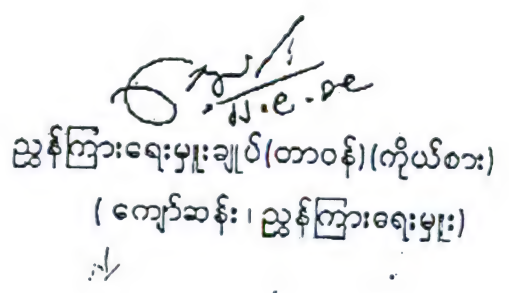 ညွှန်ကြားရေးမှူးချုပ်(တာဝန်)(ကိုယ်စား)
( ကျော်ဆန်း ၊ ညွှန်ကြားရေးမှူး)